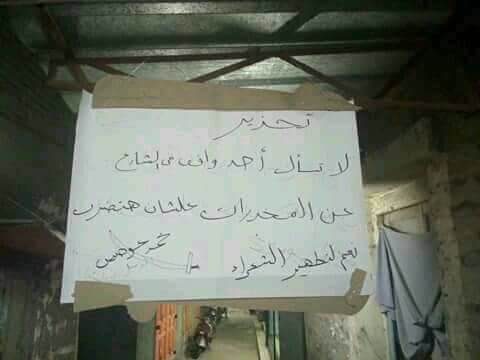 تحذير
لا تسأل أحد واقف فى الشارع
عن المخدرات علشان هتضرب
نعم لتطهير الشعراء